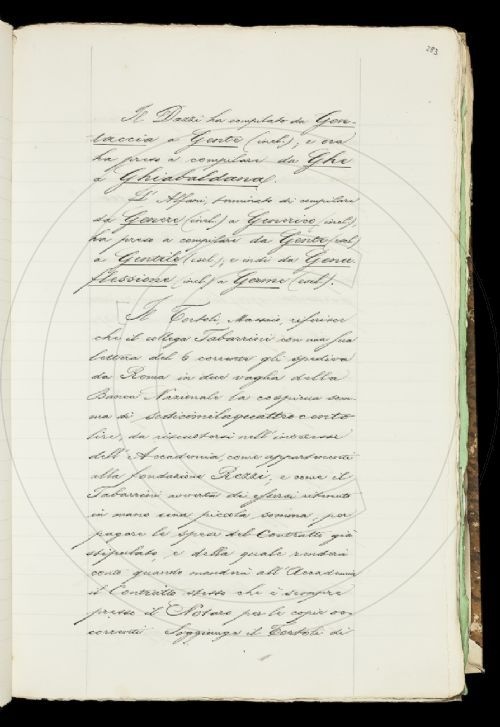 283
Il Dazzi ha compilato da Gen-
taccia a Gente (incl.), e ora
ha preso a compilare da Ghe
a Ghiabaldana.
L'Alfani, terminato di compilare
da Genere (incl.) a Generico (incl.)
ha preso a compilare da Gente (escl.)
a Gentile (escl.), e indi da Genu-
flessione (incl.) a Germe (escl.).
Il Tortoli, Massaio, riferisce
che il collega Tabarrini con una sua
lettera del 6 corrente gli spediva
da Roma in due vaglia della
Banca Nazionale la cospicua som-
ma di sedicimilaquattrocento
lire, da riscuotersi nell'interesse
dell'Accademia, come appartenenti
alla fondazione Rezzi, e come il
Tabarrini avverta di essersi ritenuto
in mano una piccola somma, per
pagare le spese del Contratto già
stipulato, e della quale renderà
conto quando manderà all'Accademia
il Contratto stesso che è sempre
presso il Notaro per le copie oc-
correnti. Soggiunge il Tortoli di